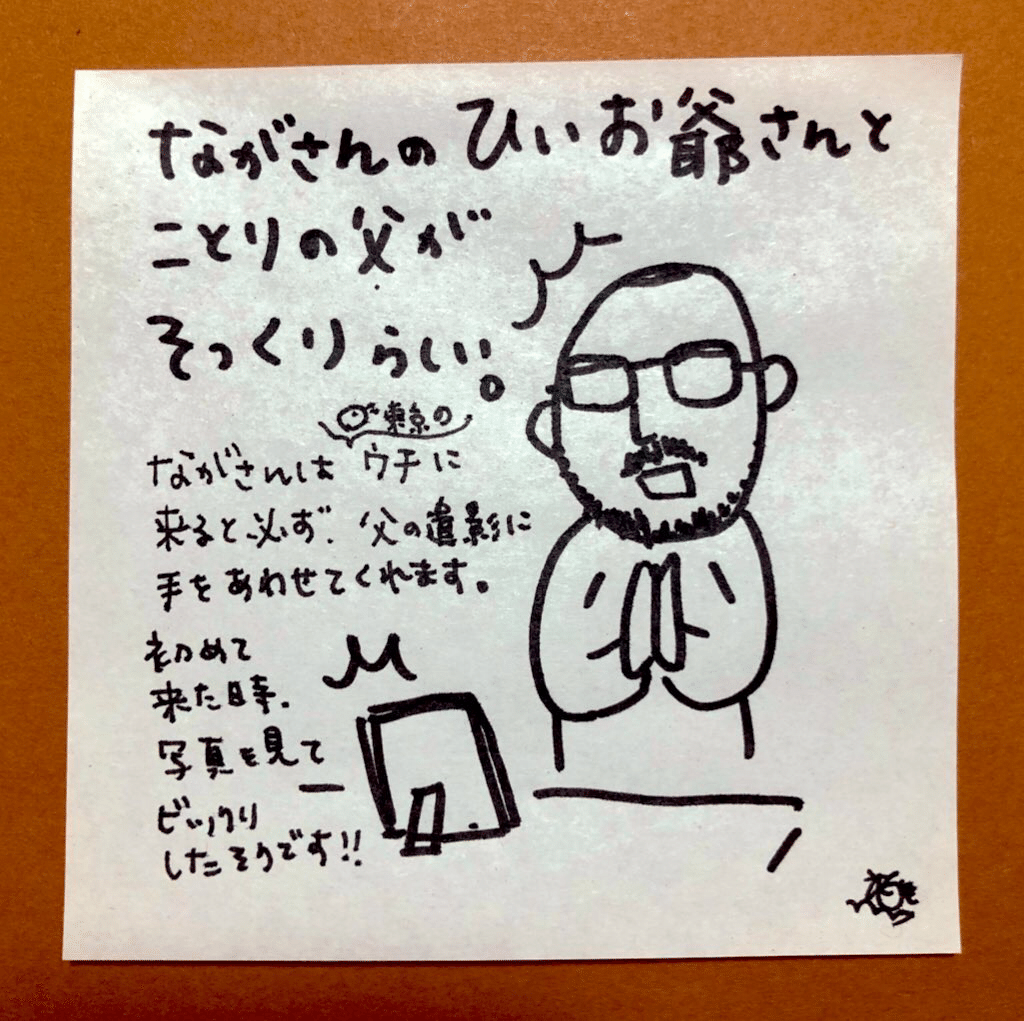 ながさんのひいお爺さんと
ことりの父が
そっくりらしい。
東京の
ながさんは ウチに
来ると必ず、父の遺影に
手をあわせてくれます。
初めて
来た時、
写真を見て
ビックリ
したそうです!!